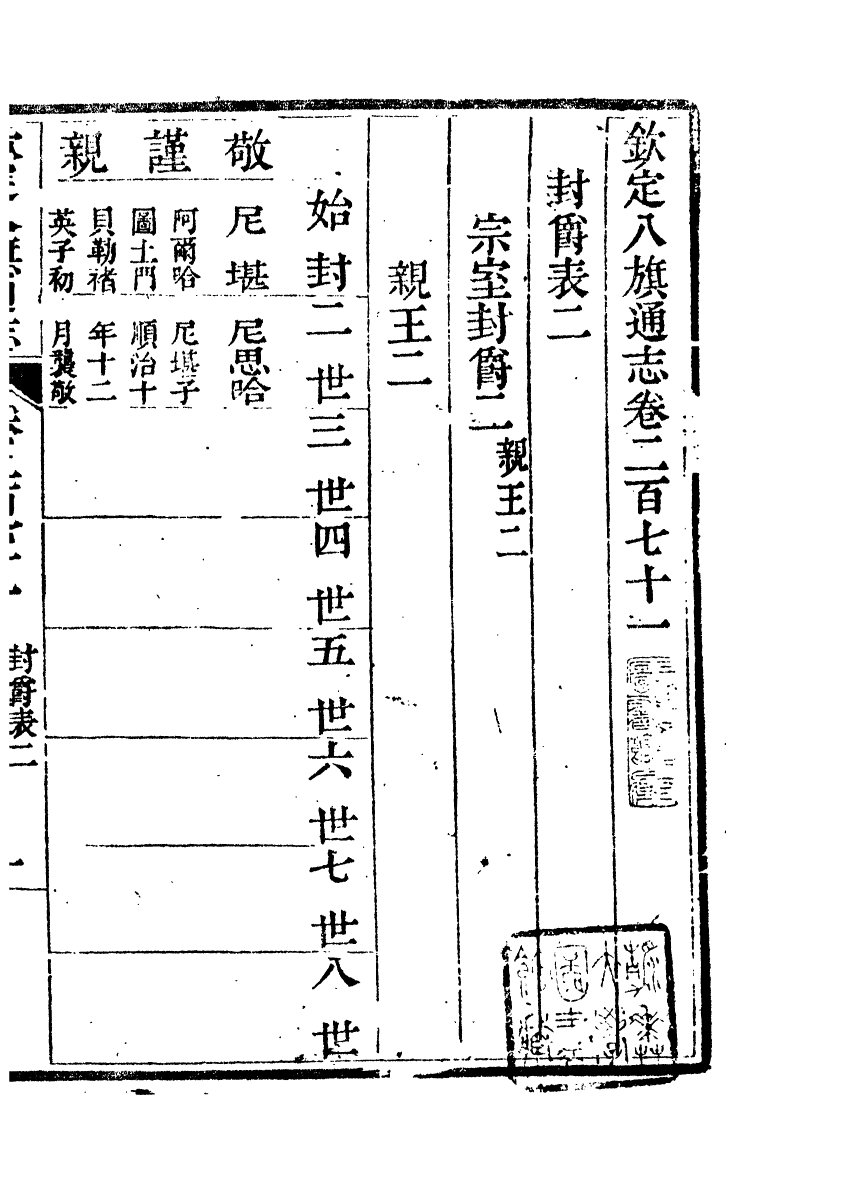 欽定八旗通志卷二百七十一
封爵表二
宗室封爵二親王二
親王二
始封二世三世四世五世六世七世八世
敬謹親
尼堪
阿爾哈
圖土門
貝勒褚
英子初
尼思哈
尼堪子
順治十
年十二
月襲敬
封爵表二
一